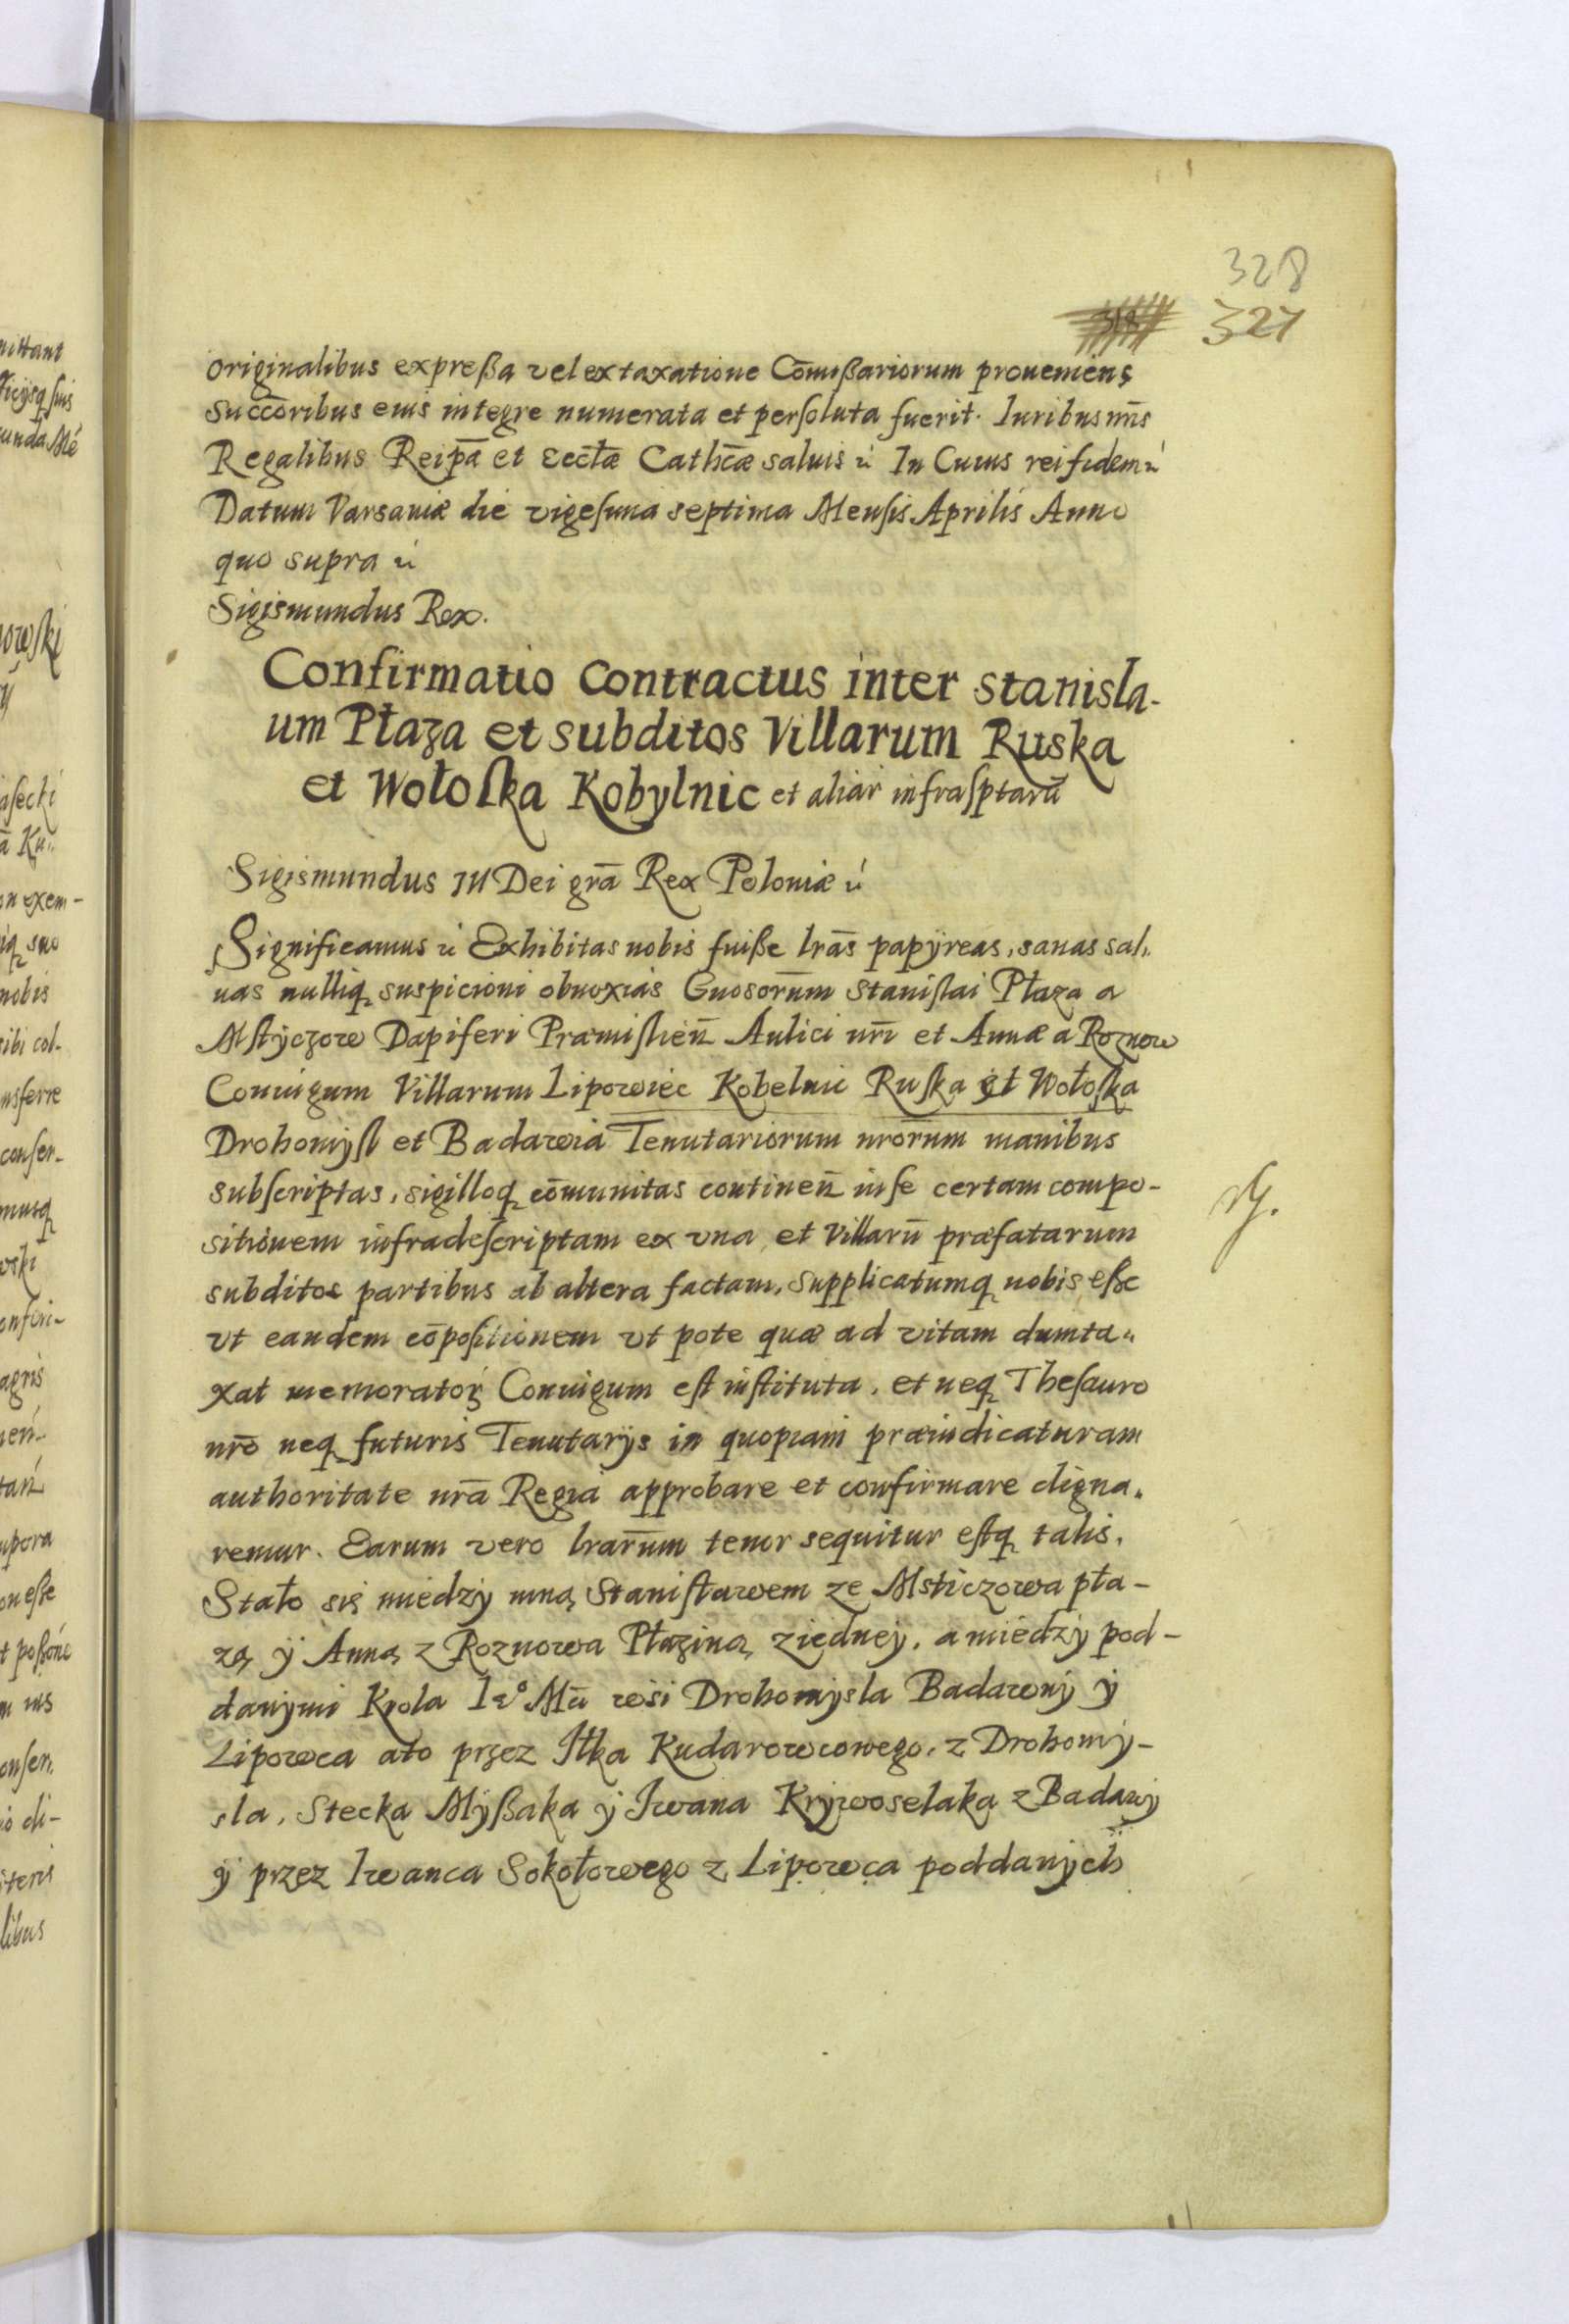 328
327
originalibus expreßa vel ex taxatione Com̄ißariorum proueniens
Succōribus eius integre numerata et persoluta fuerit. Iuribus nr̄is
Regalibus Reip̄a et Eccl̄æ Cath̄cæ saluis etc. In Cuius rei fidem etc.
Datum Varsauiæ die vigesima septima Mensis Aprilis Anno
quo supra etc.
Sigismundus Rex.
Confirmatio Contractus inter Stanisla-
um Płaza et subditos Villarum Ruska
et Wołoska Kobylnic et aliar infrasptarū
Sigismundus III Dei grā Rex Poloniæ etc.
Significamus etc. Exhibitas nobis fuiße lrās papÿreas, sanas sal-
uas nulliq suspicioni obnoxias Gnosorūm Stanislai Płaza a
Mstÿczow Dapiferi Præmislien̄ Aulici nrī et Annæ a Roznow
Coniugum Villarum Lipowiec Kobelnic Ruska et Wołoska
Drohomÿsl et Badawia Tenutariorum nrōrum manibus
subscriptas, sigilloq cōmunitas continen̄ in se certam compo-
sitionem infradescriptam ex vna et Villarū præfatarum
subditos partibus ab altera factam. Supplicatumq nobis eße
vt eandem cōpositionem vt pote quæ ad vitam dumta-
xat memorator Coniugum est instituta, et neq Thesauro
nrō neq futuris Tenutarÿs in quopiam præiudicaturam
authoritate nrā Regia approbare et confirmare digna-
remur. Earum vero lrarūm tenor sequitur estq talis.
Stało się miedzÿ mną Stanisławem ze Msticzowa pła-
zą ÿ Anną z Roznowa Płazina ziednej, a miedzÿ pod-
danÿmi Krola Ieº Mci wsi Drohomÿsla Badawÿ ÿ
Lipowca ato przez Iłka Kudarowcowego z Drohomÿ-
sla, Stecka Mÿßaka ÿ Iwana Krÿwoselaka z Badawÿ
ÿ przez Iwanca Sokołowego z Lipowca poddanÿch